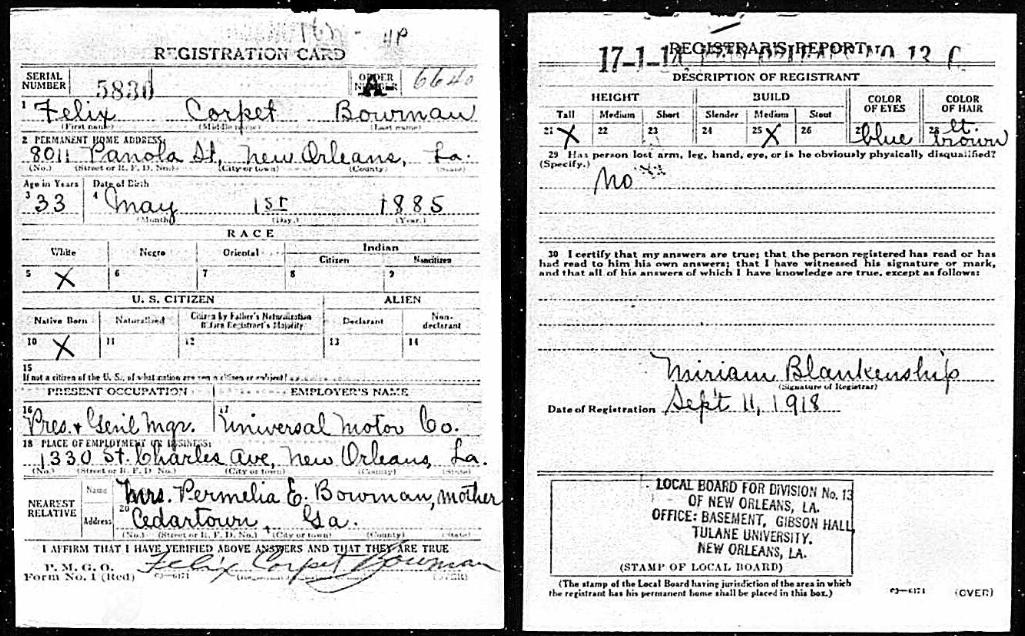 REGISTRATION CARD
SERIAL NUMBER 5830 ORDER NUMBER A 6640
1 Felix Corpet Bowman
(First name) (Middle name) (Last name)
2 PERMANENT HOME ADDRESS:
8011 Panola St, New Orleans, La.
(No.) (Street or R. F. D. No.) (City or town) (County) (State)
Age in Years Date of Birth
3 33 4 May 1st 1885
(Month) (Day.) (Year.)
RACE
White Negro Oriental Indian
Citizen Noncitizen
5 X 6 7 8 9
U. S. CITIZEN ALIEN
Native Born Naturalized Citizen by Father's Naturalization Before Registrant's Majority Declarant Non-declarant
10 X 11 12 13 14
15
If not a citizen of the U. S., of what nation are you a citizen or subject?
PRESENT OCCUPATION EMPLOYER'S NAME
16 Pres. & Genl Mgr. 17 Universal Motor Co.
18 PLACE OF EMPLOYMENT OR BUSINESS:
1330 St. Charles Ave, New Orleans, La.
(No.) (Street or R. F. D. No.) (City or town) (County) (State)
NEAREST RELATIVE Name Mrs. Permelia E. Bowman, mother
Address 20 Cedartown, Ga.
(No.) (Street or R. F. D. No.) (City or town) (County) (State)
I AFFIRM THAT I HAVE VERIFIED ABOVE ANSWERS AND THAT THEY ARE TRUE
P. M. G. O.
Form No. 1 (Red) Felix Corpet Bowman
(OVER)
REGISTRAR'S REPORT
17-1-1 NO. 13 C
DESCRIPTION OF REGISTRANT
HEIGHT BUILD COLOR OF EYES COLOR OF HAIR
Tall Medium Short Slender Medium Stout
21 X 22 23 24 25 X 26 27 blue 28 lt. brown
29 Has person lost arm, leg, hand, eye, or is he obviously physically disqualified?
(Specify.)
no
30 I certify that my answers are true; that the person registered has read or has
had read to him his own answers; that I have witnessed his signature or mark,
and that all of his answers of which I have knowledge are true, except as follows:
Miriam Blankenship
(Signature of Registrar)
Date of Registration Sept 11, 1918
LOCAL BOARD FOR DIVISION No. 13
OF NEW ORLEANS, LA.
OFFICE: BASEMENT, GIBSON HALL
TULANE UNIVERSITY.
NEW ORLEANS, LA.
(STAMP OF LOCAL BOARD)
(The stamp of the Local Board having jurisdiction of the area in which
the registrant has his permanent home shall be placed in this box.)
03—6171 (OVER)